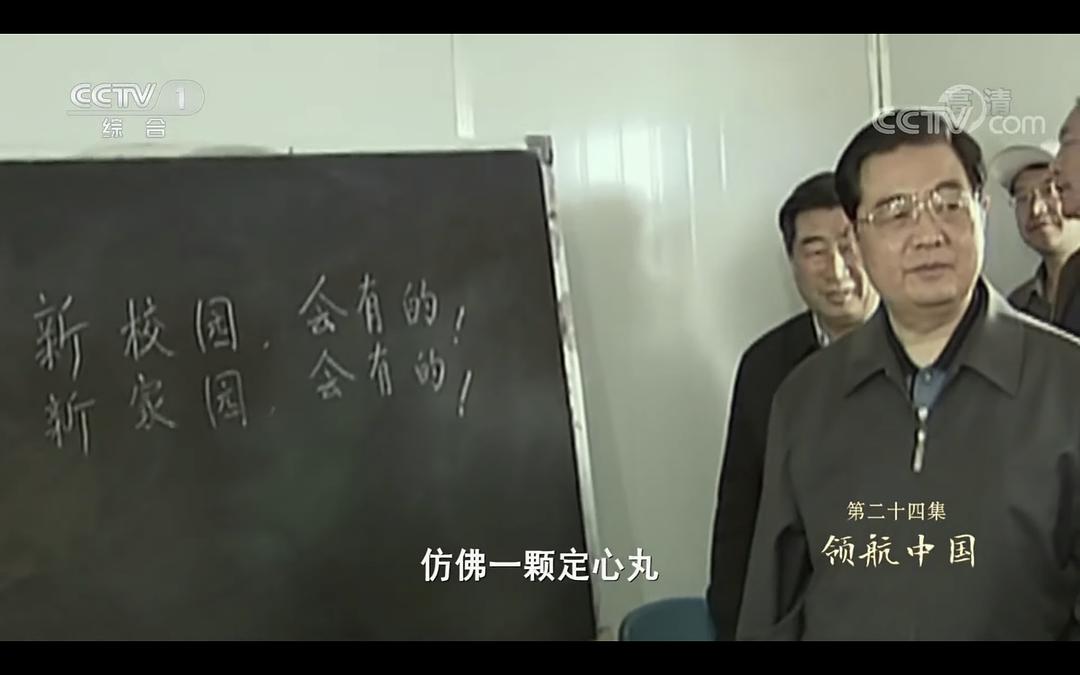 CCTV 1
综合
高清
CCTV.com
新校园，会有的！
新家园，会有的！
第二十四集
领航中国
仿佛一颗定心丸